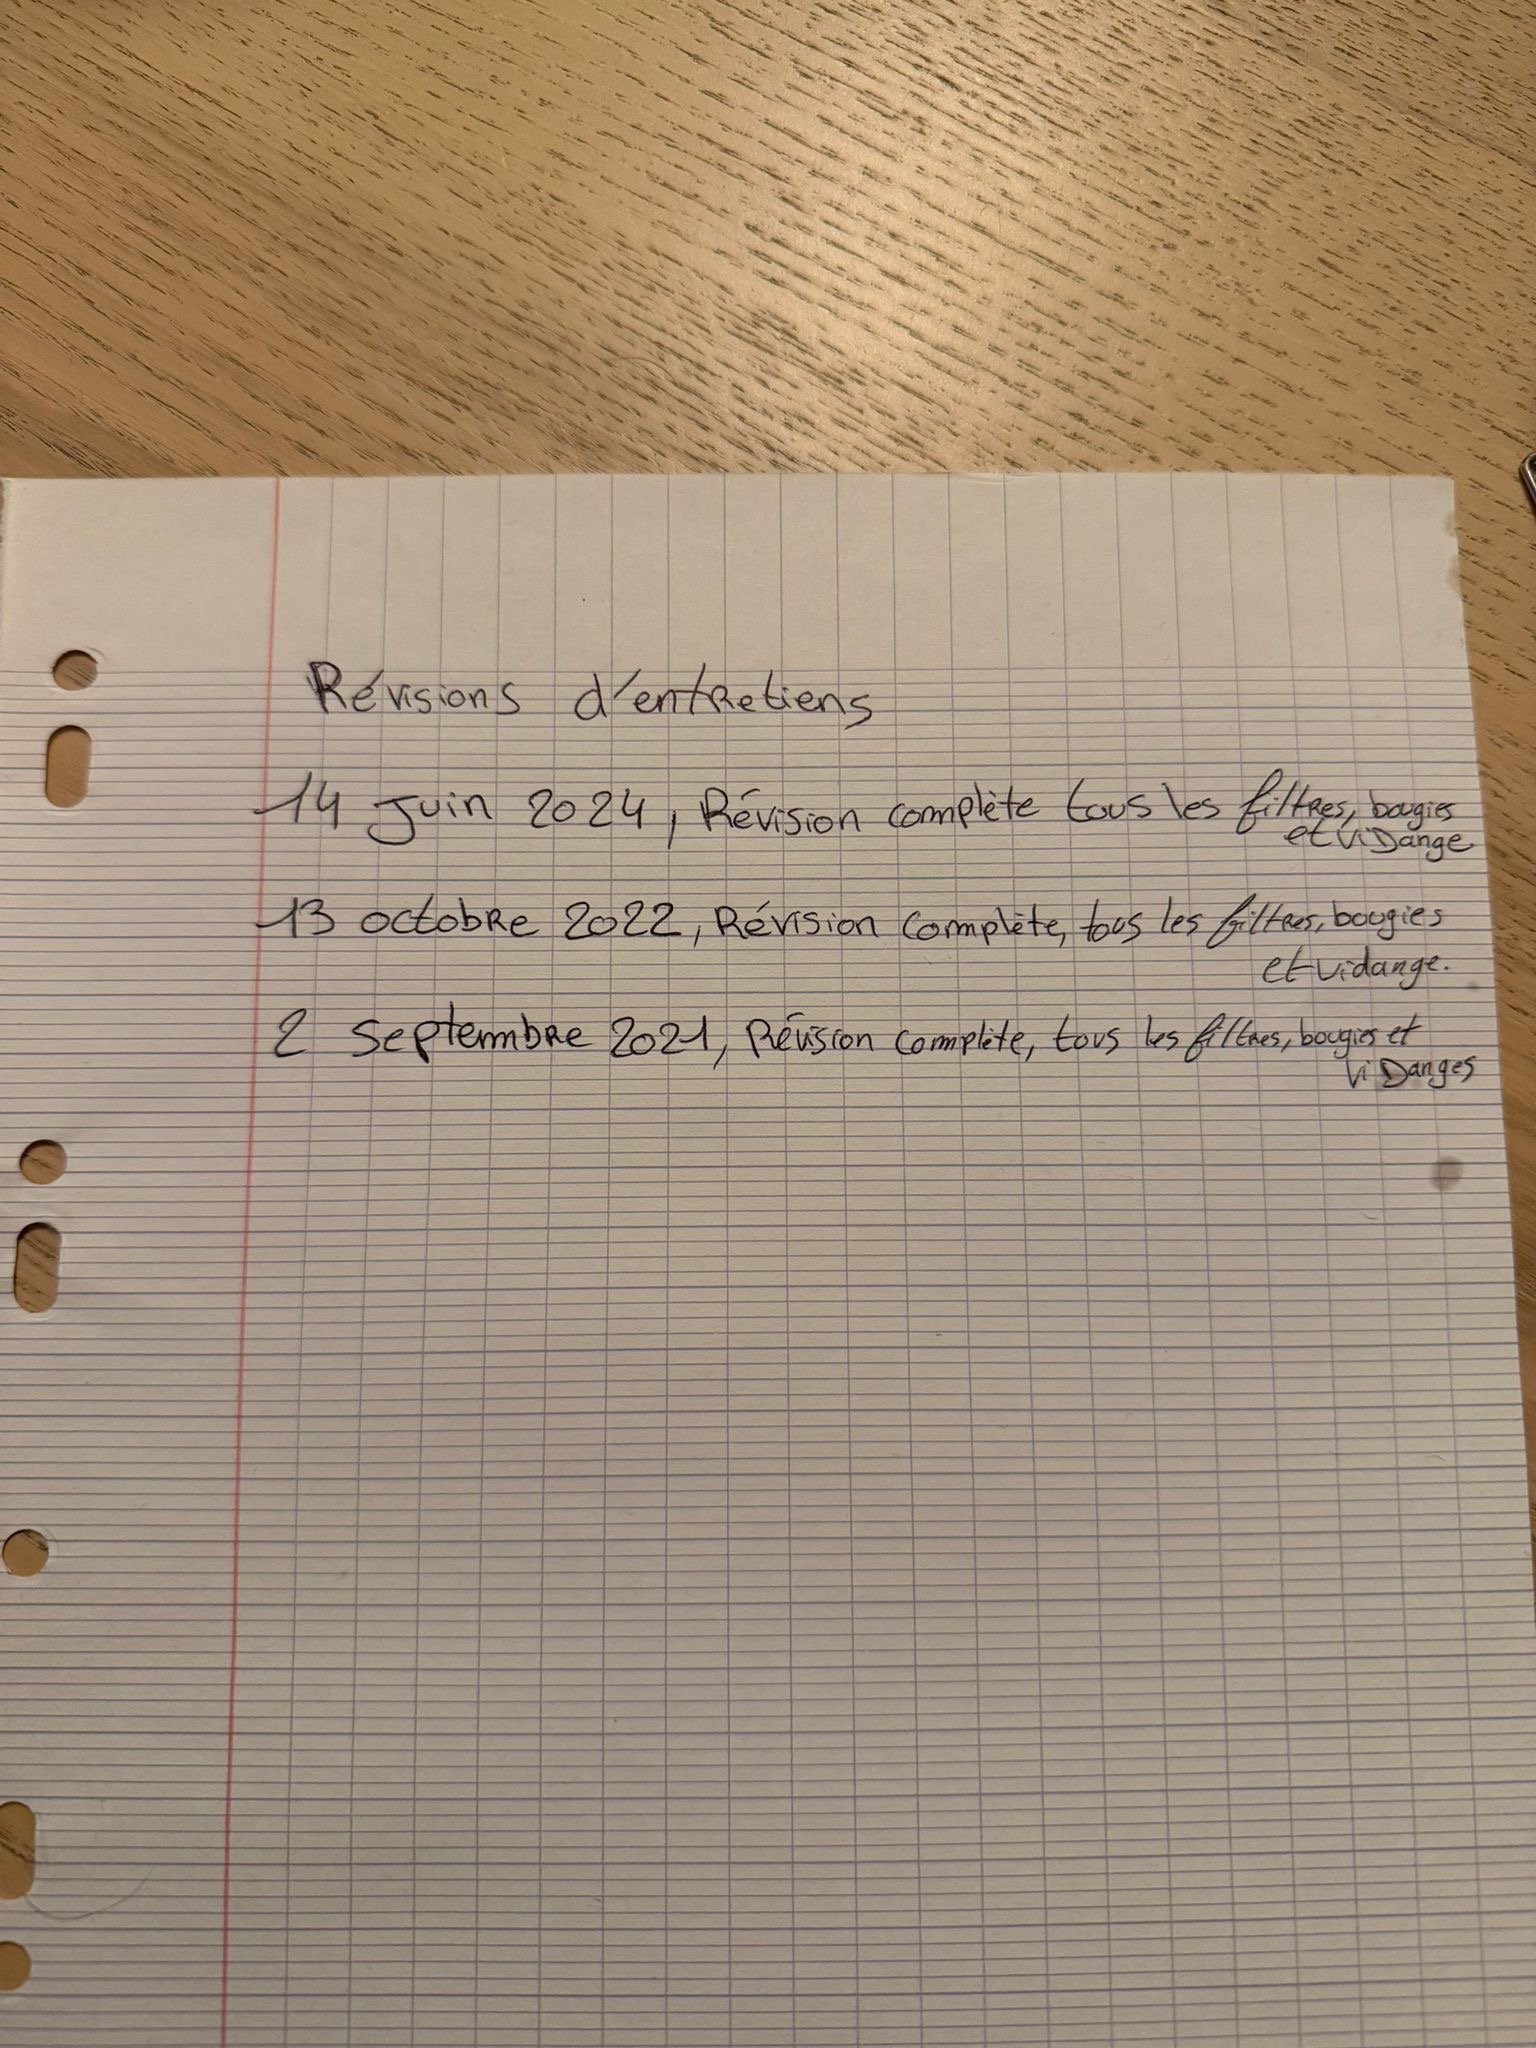 Révisions d'entretiens
14 Juin 2024, Révision complète tous les filtres, bougies
et viDange
13 octobre 2022, Révision complète, tous les filtres, bougies
et vidange.
2 Septembre 2021, Révision complète, tous les filtres, bougies et
viDanges